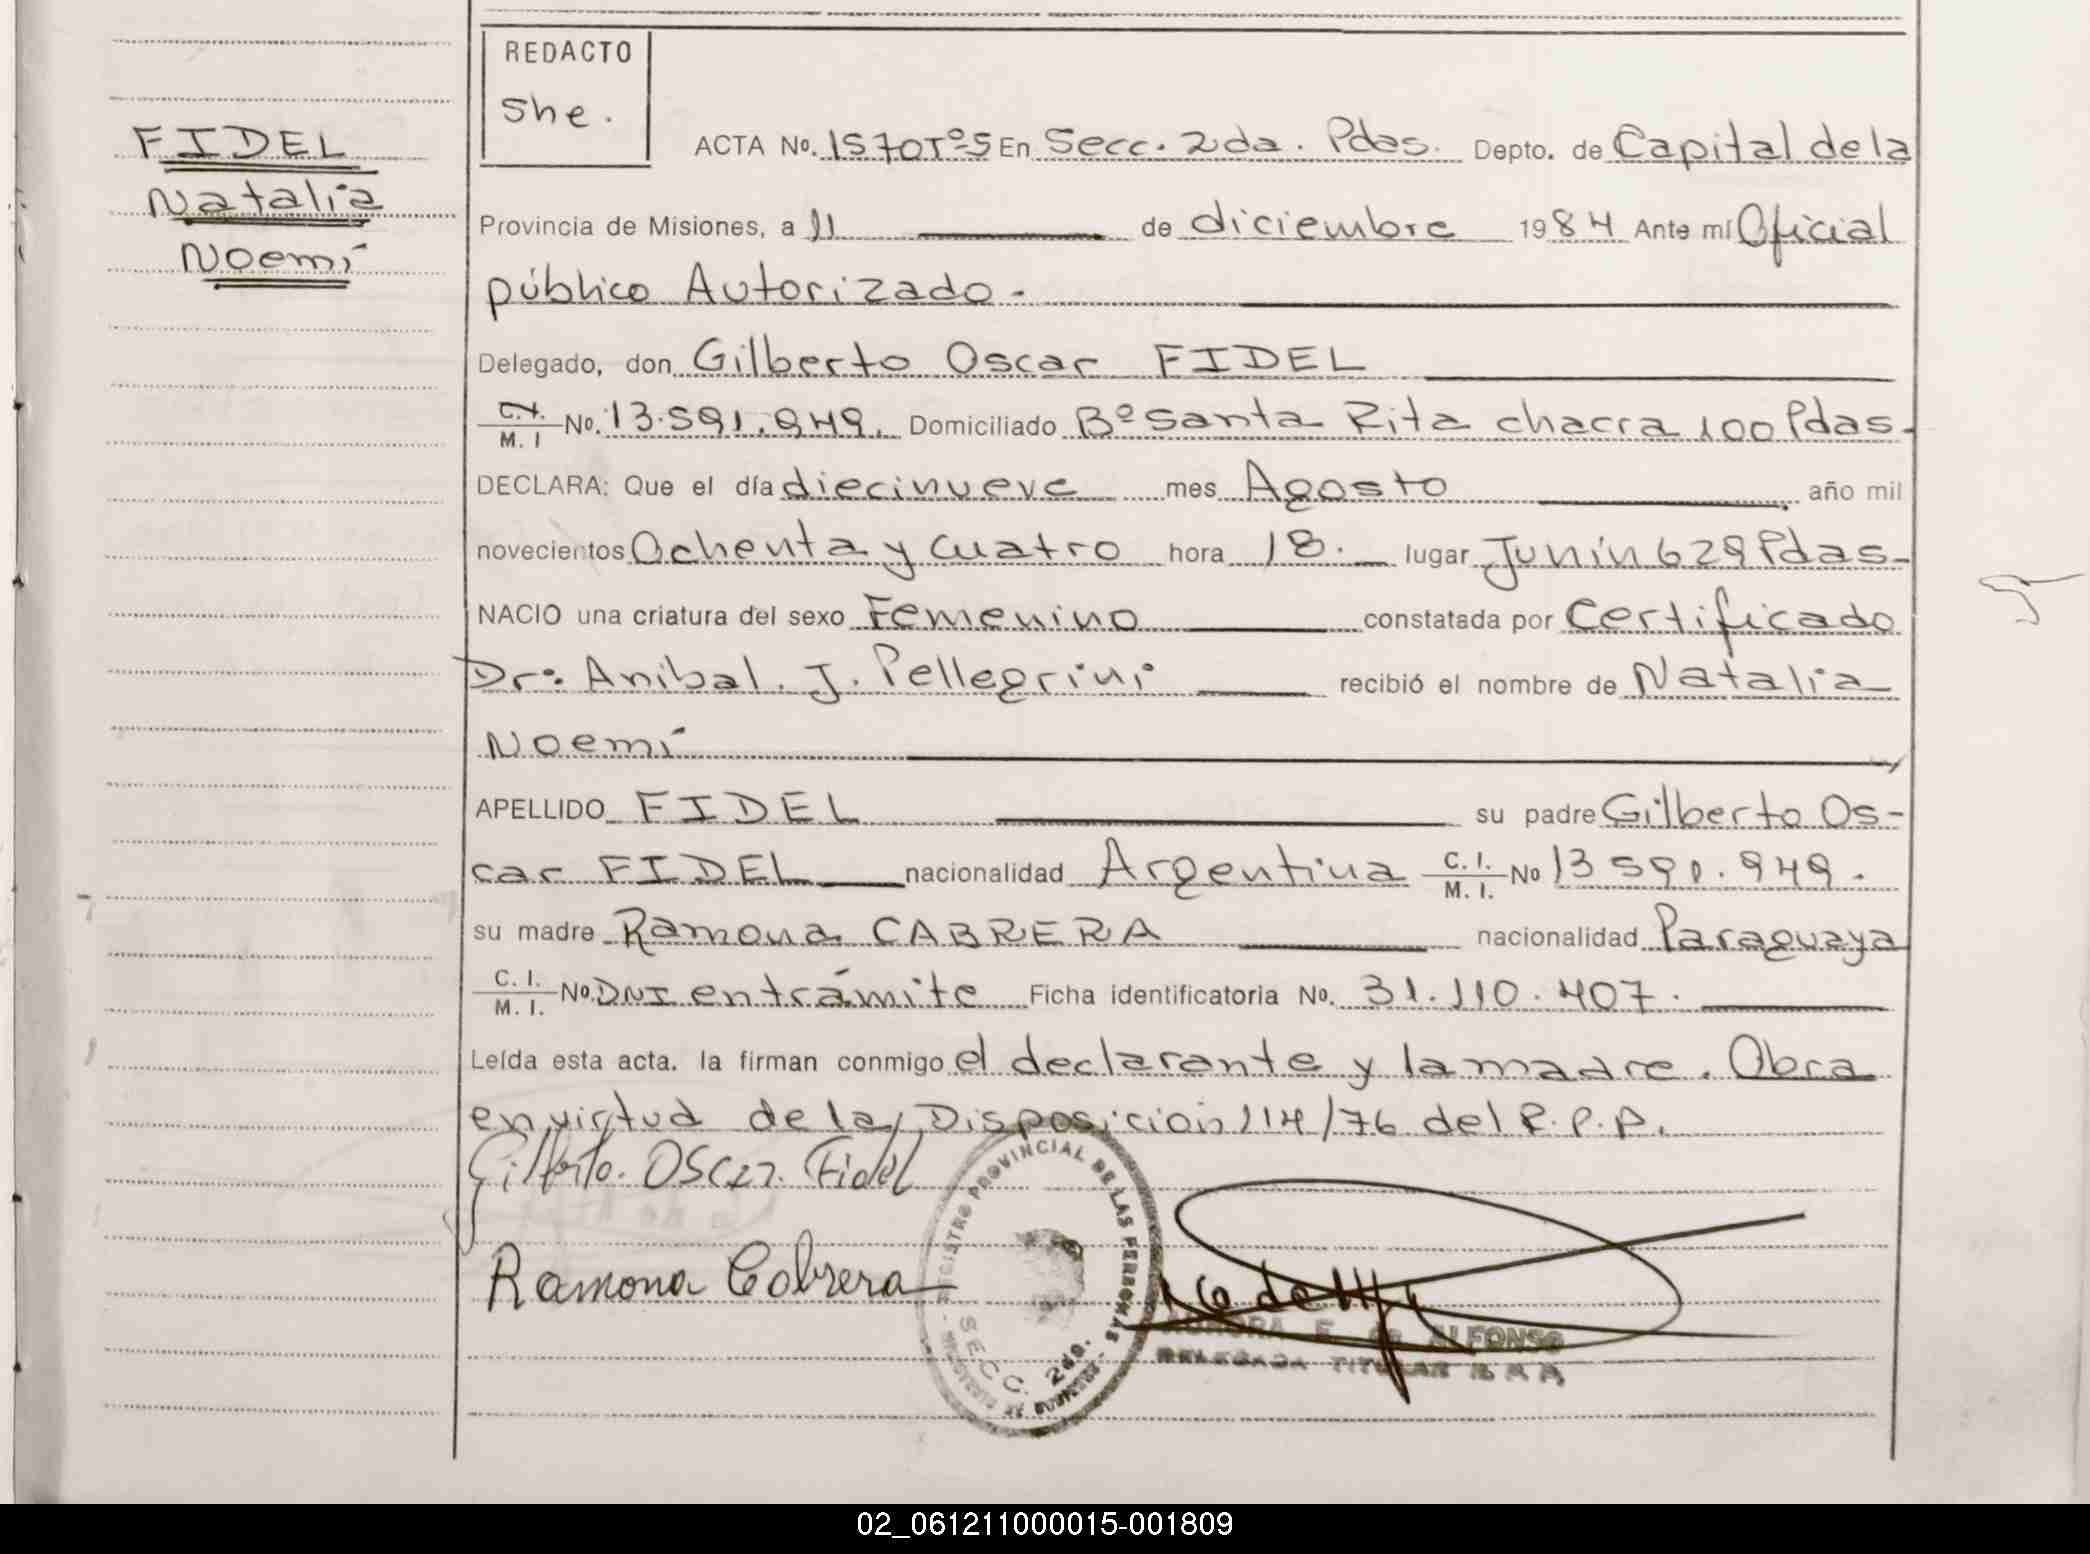 REDACTO
She.
FIDEL
Natalia
Noemí
ACTA No. 1570 Tº5 En Secc. 2da. Pdas. Depto. de Capital de la
Provincia de Misiones, a 11 de diciembre 1984 Ante mí Oficial
público Autorizado.
Delegado, don Gilberto Oscar FIDEL
C.I. M. I No. 13.591.949. Domiciliado Bº Santa Rita chacra 100 Pdas.
DECLARA: Que el día diecinueve mes Agosto año mil
novecientos Ochenta y cuatro hora 18. lugar Junín 629 Pdas-
NACIO una criatura del sexo Femenino constatada por Certificado
Dr: Anibal. J. Pellegrini recibió el nombre de Natalia
Noemí
APELLIDO FIDEL su padre Gilberto Os-
car FIDEL nacionalidad Argentina C. I. M. I. No 13 591.949.
su madre Ramona CABRERA nacionalidad Paraguaya
C. I. M. I. No. DNI en trámite Ficha identificatoria No. 31.110.407.
Leída esta acta. la firman conmigo el declarante y la madre. Obra
en virtud de la Disposición 114/76 del R.P.P.
Gilberto. Oscar. Fidel
Ramona Cabrera
REGISTRO PROVINCIAL DE LAS PERSONAS
SECC. 2da.
AURORA E. de ALFONSO
DELEGADA TITULAR R.P.P.
02_061211000015-001809